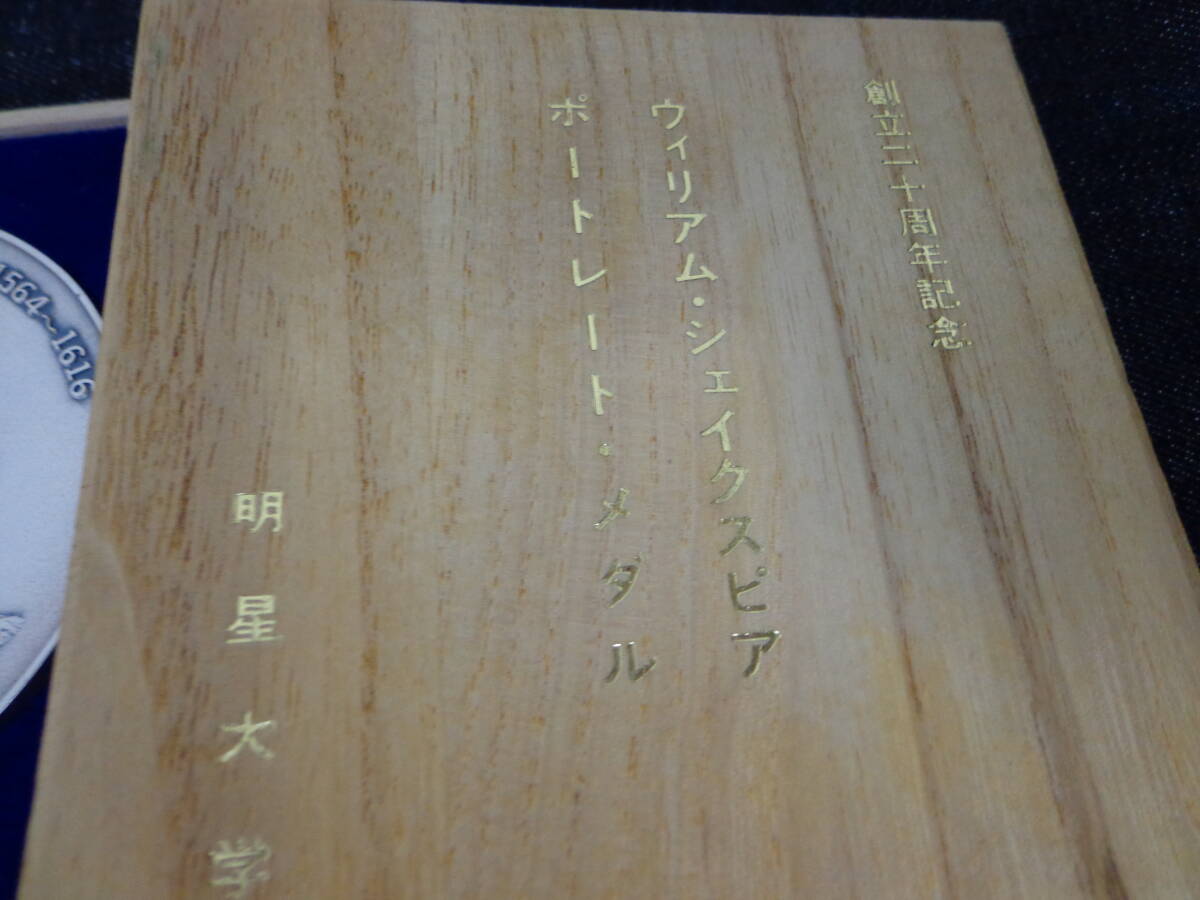 創立二十周年記念
ウィリアム・シェイクスピア
ポートレート・メダル
明星大学
1564~1616